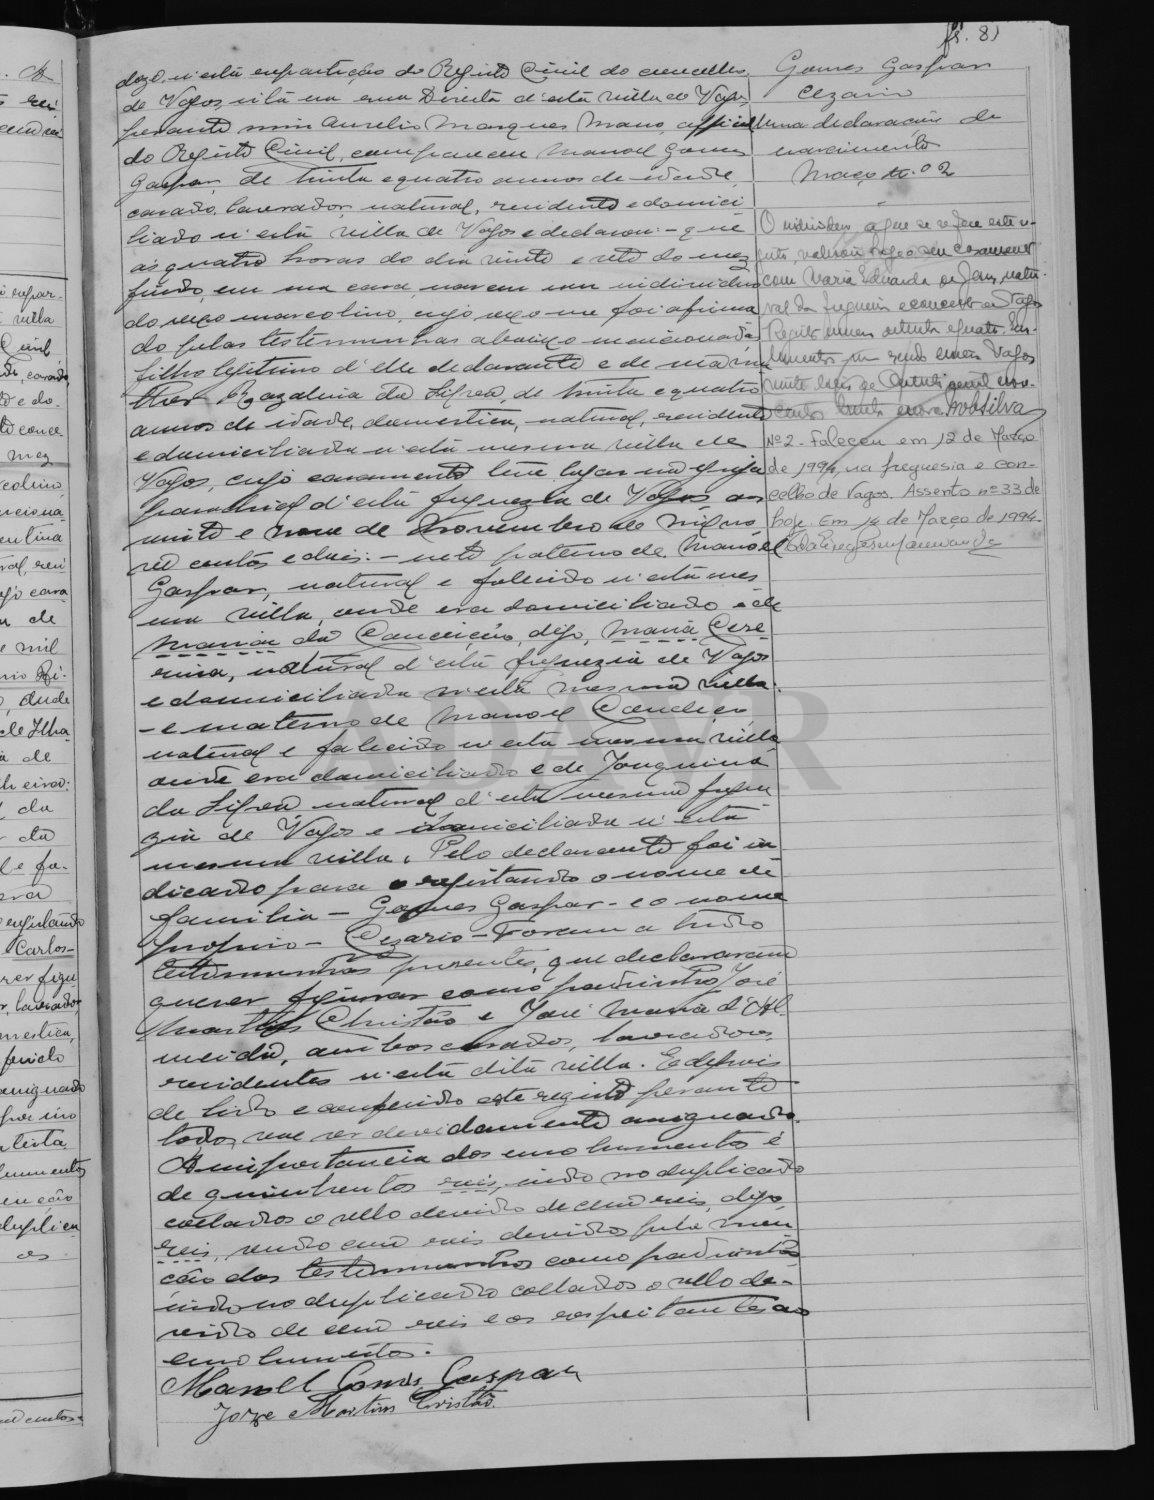 fs. 81
doze n'esta repartição do Registo Civil do concelho
de Vagos, sita na rua Direita d'esta villa de Vagos,
perante mim Aurelio Marques Mano, official
do Registo Civil, compareceu Manoel Gomes
Gaspar, de trinta e quatro annos de idade,
casado, lavrador, natural, residente e domici
liado n'esta villa de Vagos e declarou: - que
ás quatro horas do dia vinte e sete do mez
findo, em sua casa, nasceu um individuo
do sexo masculino, cujo sexo me foi afirma
do pelas testemunhas abaixo mencionadas
filho legitimo d'elle declarante e de sua mu
lher Rozalina da Silva, de trinta e quatro
annos de idade, domestica, natural, residente
e domiciliada n'esta mesma villa de
Vagos, cujo casamento teve lugar na egreja
parochial d'esta freguezia de Vagos aos
vinte e nove de Novembro de mil no
ve centos e dois: - neto paterno de Manoel
Gaspar, natural e falecido n'esta mes
ma villa, onde era domiciliado e de
Maria da Conceição, digo, Maria Ceze
rina, natural d'esta freguezia de Vagos
e domiciliada n'esta mesma villa.
- e materno de Manoel
natural e falecido n'esta mesma villa
onde era domiciliado e de Joaquina
da Silva natural d'esta mesma fregue
zia de Vagos e domiciliada n'esta
mesma villa. Pelo declarante foi in
dicado para o registando o nome de
familia - Gomes Gaspar - e o nome
proprio - Cezario - Foram a tudo
testemunhas presentes, que declararam
querer figurar como padrinhos José
Martins Christão e José Maria d'Al
meida, ambos casados, lavradores,
residentes n'esta dita villa. E depois
de lido e conferido este registo perante
todos, vae ser devidamente assignado.
A importancia dos emolumentos é
de quinhentos reis, indo no duplicado
collados o sello devido de cem reis, digo
reis, sendo cem reis devidos pela men
ção das testemunhas como padrinhos
indo no duplicado collados o sello de-
vido de cem reis e os respeitantes ao
emolumentos.
Manoel Gomes Gaspar
Joze Martins Cristão
Gomes Gaspar
Cezario
Uma declaração de
nascimento
Março 02
O individuo a que se refere este re-
gisto, realisou hoje o seu casamento
com Maria Eduarda de Jesus, natu-
ral da freguesia e concelho de Vagos
Registo numero setenta e quatro.
Vagos
vinte e seis de Outubro de mil nove-
centos trinta e nove. MdaSilva
Nº2 - Faleceu em 12 de Março
de 1994, na freguesia e con-
celho de Vagos. Assento nº 33 de
hoje. Em 14 de Março de 1994.
ADAVR